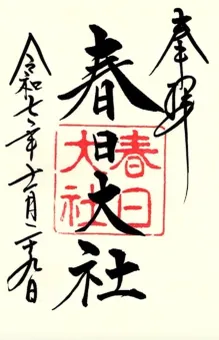 奉拝
春日大社
春日大社
令和七年十一月二十九日